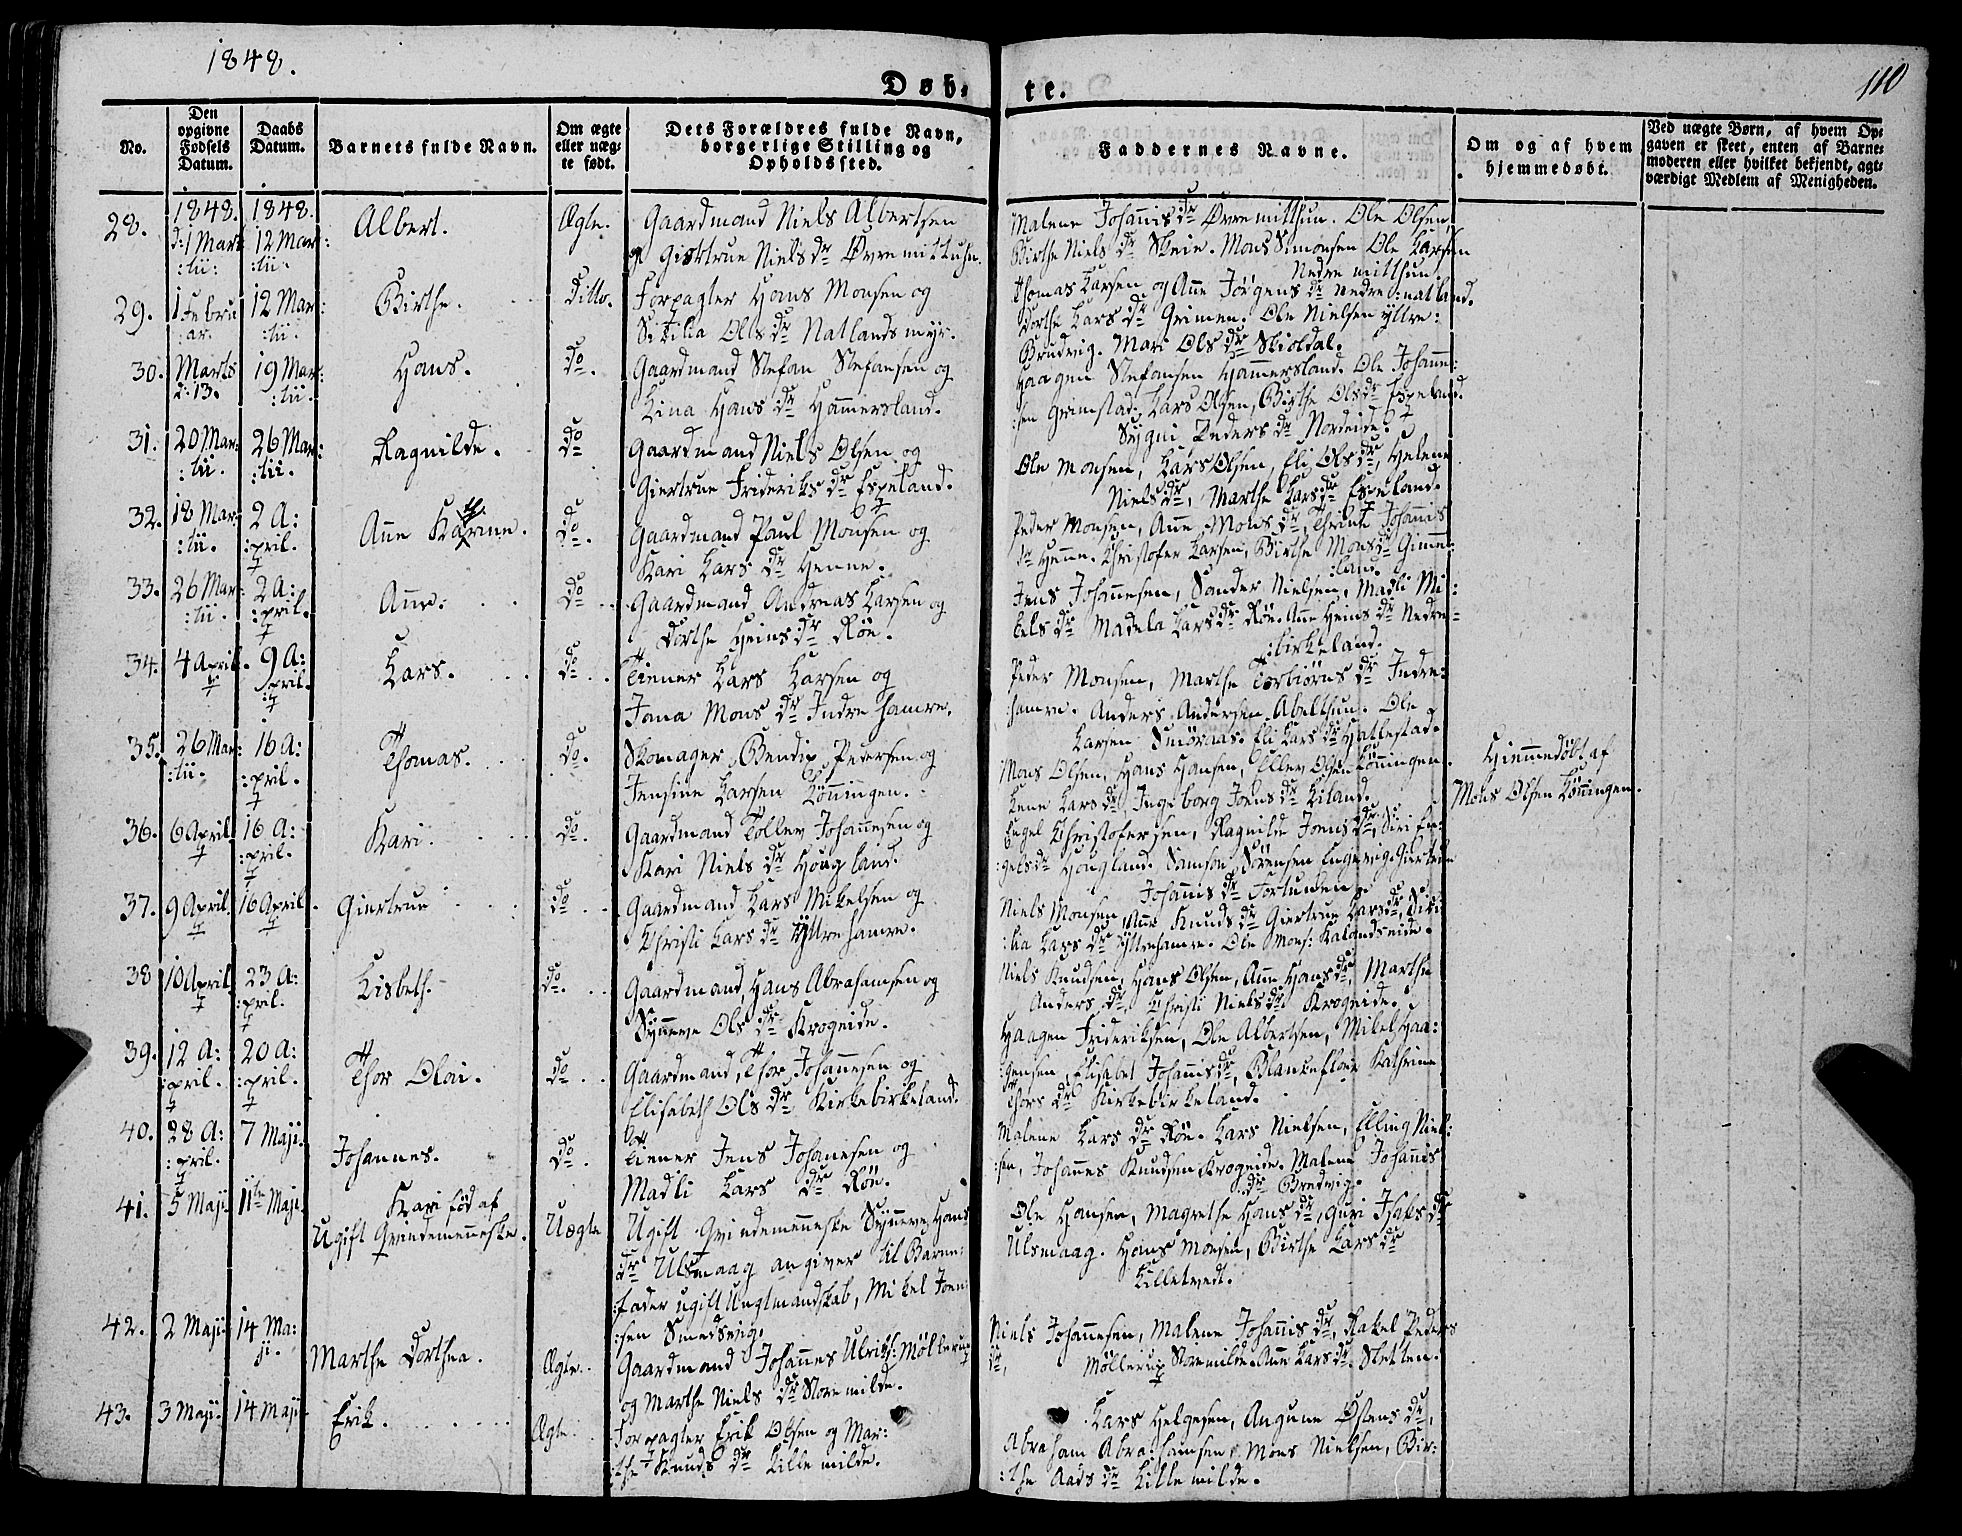 1848.
Døb-
te.
110
No.
Den opgivne Fødsels Datum.
Daabs Datum.
Barnets fulde Navn.
Om ægte eller uægte født.
Dets Forældres fulde Navn, borgerlige Stilling og Opholdssted.
Faddernes Navne.
Om og af hvem hjemmedøbt.
Ved uægte Børn, af hvem Opgaven er skeet, enten af Barnemoderen eller hvilket bekjendt, agtværdigt Medlem af Menigheden.
28. 1848. d: 1 Mar :tii: 1848. 12 Mar: :tii. Albert. Ægte. Gaardmand Niels Albertsen
og Giertrue Niels dr Øvremittuhn.
Malene Johannis dr Øvremitthun. Ole Olsen,
Birthe Niels dr Skeie. Mons Simonsen Ole Larsen
Nedre mitthun.
29. 1 Febru :ar. 12 Mar: :tii. Birthe. Ditto. Forpagter Hans Monsen og
Sisilia Ols dr Natlandsmyr.
Thomas Larsen og Ane Jörgens dr Nedre :natland.
Dorthe Lars dr Grimen. Ole Nielsen yttre:
Brudvig. Mari Ols dr Skioldal.
30. Marts d: 13. 19 Mar: :tii. Hans. Do. Gaardmand Stefan Stefansen og
Lina Hans dr Hammersland.
Haagen Stefansen Hammersland. Ole Johanne:
:sen Grimstad. Lars Olsen, Birthe Ols dr Espeland.
Sygni Peders dr Nordeide.
31. 20 Mar: :tii. 26 Mar: :tii. Ragnilde. Do Gaardmand Niels Olsen og
Giertrue Frideriks dr Espeland.
Ole Monsen, Lars Olsen, Eli Ols dr, Helene
Niels dr, Marthe Lars dr Espeland.
32. 18 Mar: :tii. 2 A: :pril. Ane Karine. Do. Gaardmand Paul Monsen og
Kari Lars dr Henne.
Peder Monsen, Ane Mons dr, Thrine Johannis
dr Henne. Christofer Larsen, Birthe Mons dr Gimme:
:land.
33. 26 Mar: :tii. 2 A: :pril. Ane. Do Gaardmand Andreas Larsen og
Dorthe Heins dr Røe.
Jens Johannesen, Sander Nielsen, Madli Mi:
kels dr Madela Lars dr Røe. Ane Heins dr Nedre:
:birkeland.
34. 4 April. 9 A: :pril. Lars. Do. Tiener Lars Larsen og
Jona Mons dr Indre hamre.
Peder Monsen, Marthe Torbiörns dr Indre:
:hamre. Anders Andersen Abelthun. Ole
Larsen Smöraas. Eli Lars dr Hatlestad.
35. 26 Mar: :tii. 16 A: :pril. Thomas. Do. Skomager Bendix Pedersen og
Jensine Larsen Lönningen.
Mons Olsen, Hans Hansen, Ellev Olsen Lönningen.
Lene Lars dr Ingeborg Joens dr Liland.
Hiemmedöbt af
Mons Olsen Lönningen.
36. 6 April. 16 A: :pril. Kari. Do. Gaardmand Tollev Johannesen og
Kari Niels dr Hougland.
Engel Christofersen, Ragnilde Joens dr, Siri En:
:gels dr Hougland. Samson Sörensen Giertrue
Johannis dr Fortunden.
37. 9 April. 16 April. Giertrue Do Gaardmand Lars Mikelsen og
Christi Lars dr Yttrehamre.
Niels Monsen, Ane Knuds dr Giertrue Lars dr, Sisi:
:lia Lars dr Yttrehamre. Ole Mons: Kalandseide.
38 10 April 23 A: :pril. Lisbeth. Do. Gaardmand Hans Abrahamsen og
Synneve Ols dr Krogeide.
Niels Knudsen, Hans Olsen, Ane Hans dr, Marthe
Anders dr, Christi Niels dr Krogeide.
39. 12 A: :pril. 20 A: :pril. Thor Olai. Do. Gaardmand Thor Johannesen og
Elisabeth Ols dr Kirkebirkeland.
Haagen Frideriksen, Ole Albertsen, Mikel Haa:
:gensen, Elisabet Johannis dr, Blankefloer Kathrine
Thors dr Kirkebirkeland.
40. 28 A: :pril. 7 Maji. Johannes. Do. Tiener Jens Johannesen og
Madli Lars dr Røe.
Malene Lars dr Røe. Lars Nielsen, Elling Niel:
:sen, Johannes Knudsen Krogeide. Malene Johannis
dr Brudvig.
41. 5 Maji. 11te Maji. Kari föd af
Ugift Qvindemenneske. Uægte Ugift Qvindemenneske Synneve Hans
dr Ulsmaag angiver til Barne:
:fader ugift Ungtmandskab, Mikel Joen:
:sen Smedsvig.
Ole Hansen, Magrethe Hans dr, Guri Isaks dr
Ulsmaag. Hans Monsen, Birthe Lars dr
Lilletvedt.
42. 2 Maji. 14 Ma: ji. Marthe Dorthea. Ægte. Gaardmand Johannes Ulriks: Möllerup
og Marthe Niels dr Storemilde.
Niels Johannesen, Malene Johannis dr, Rakel Peders
dr, Möllerup Storemilde. Ane Lars dr Sletten.
43. 3 Maji. 14 Maji Erik. Ægte. Forpagter Erik Olsen og Mar:
:the Knuds dr Lillemilde.
Lars Helgesen, Ostens dr,
Abraham Abrahamsen, Mons Nielsen, Bir:
:the Aads dr Lillemilde.